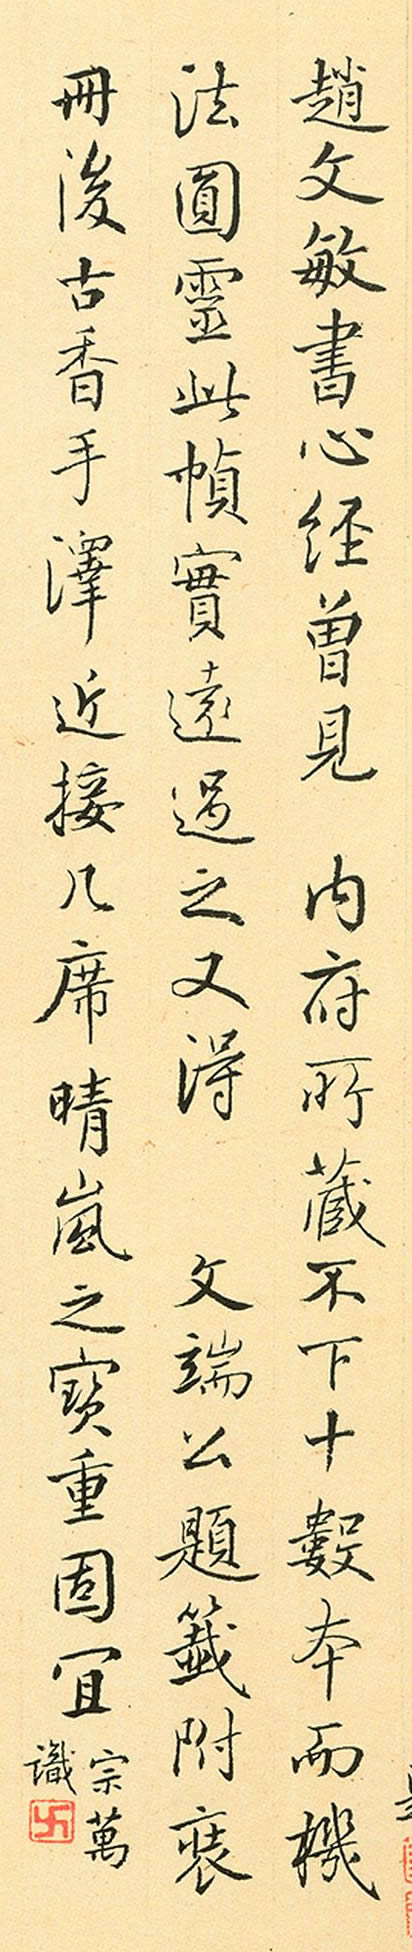 趙文敏書心經曾見　內府所藏不下十數本而機
法圓靈此幀實遠過之又得　文端公題籤附裝
冊後古香手澤近接几席晴嵐之寶重固宜
宗萬
識
卍